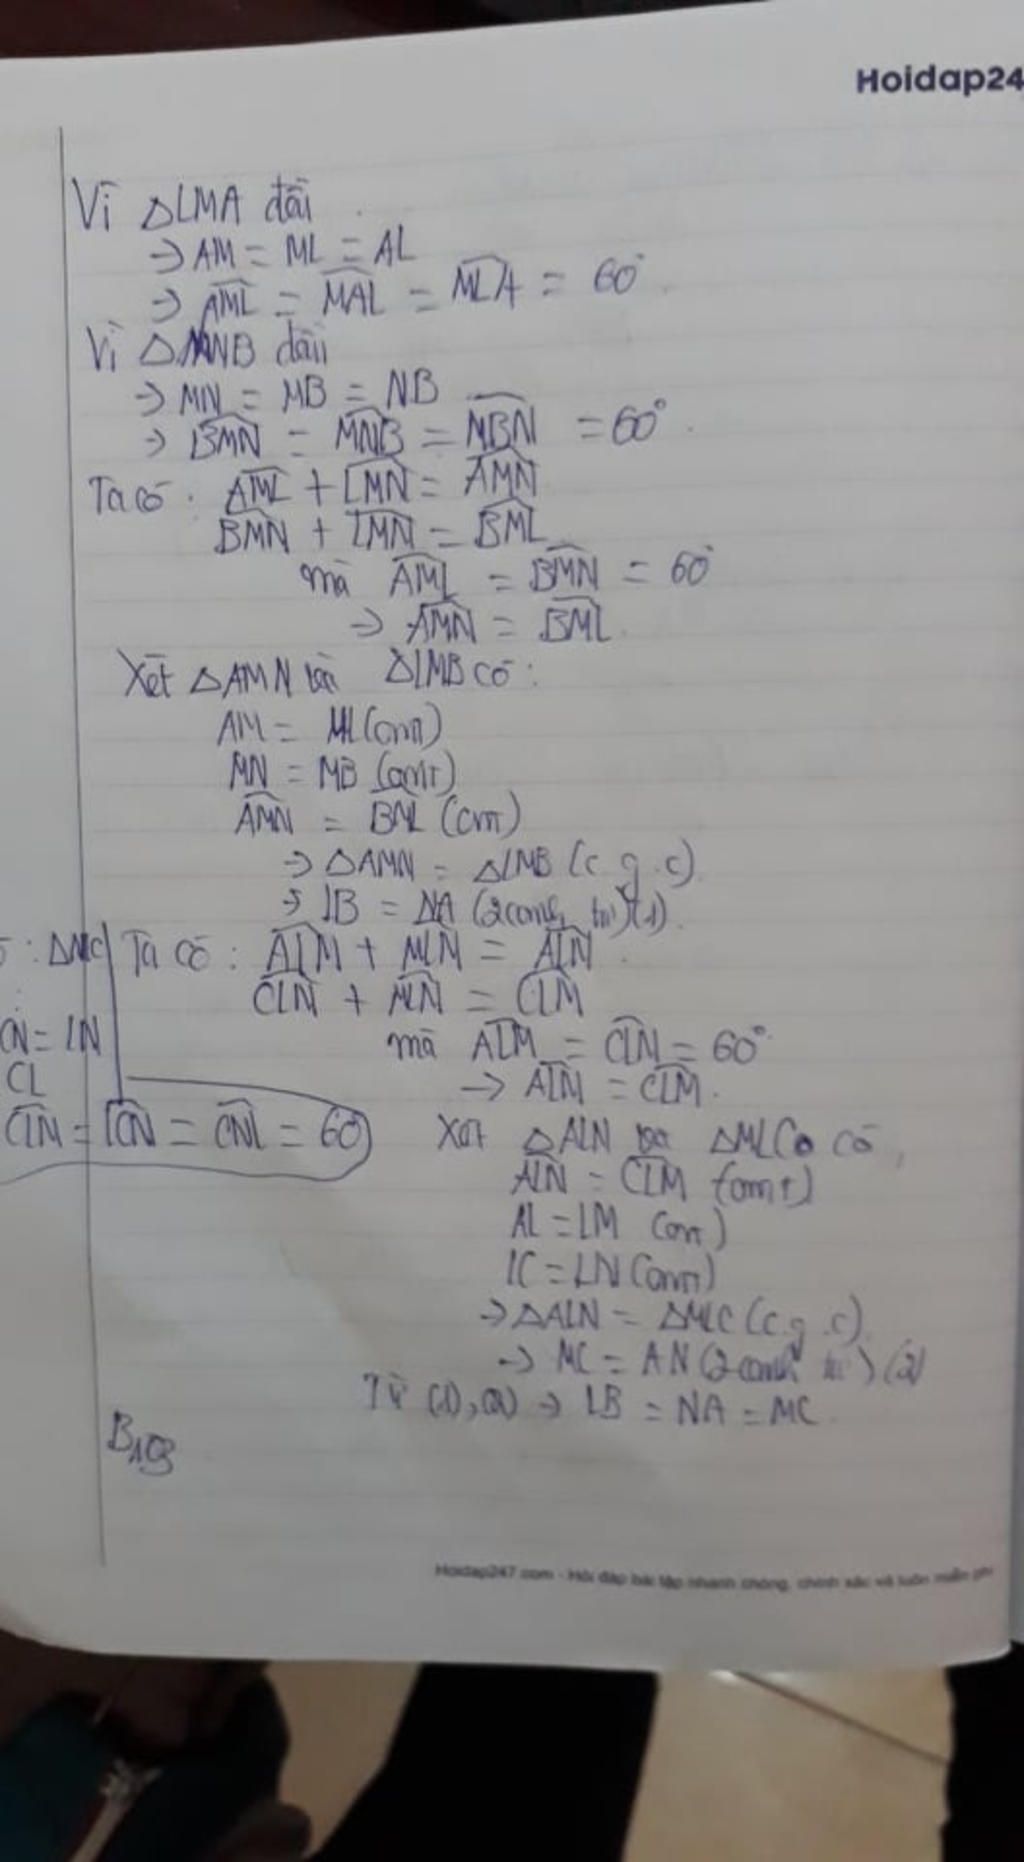 Hoidap24
Vì △LMA đều
→ AM = ML = AL
→ AML = MAL = MLA = 60°
Vì △MNB đều
→ MN = MB = NB
→ BMN = MNB = MBN = 60°
Ta có: AML + LMN = AMN
BMN + LMN = BML
mà AML = BMN = 60°
→ AMN = BML
Xét △AMN và △LMB có:
AM = ML (cmt)
MN = MB (cmt)
AMN = BML (cmt)
→ △AMN = △LMB (c.g.c)
→ LB = NA (2 cạnh tư) (1)
: △NLC
Ta có: ALM + MLN = ALN
CLN + MLN = CLM
CN = LN
CL
mà ALM = CLN = 60°
→ ALN = CLM
CLN = LCN = CNL = 60
Xét △ALN và △MLC có
ALN = CLM (cmt)
AL = LM (cmt)
LC = LN (cmt)
→ △ALN = △MLC (c.g.c)
→ MC = AN (2 cạnh tư) (2)
Từ (1), (2) → LB = NA = MC
Hoidap247.com - Hỏi đáp bài tập nhanh chóng, chính xác và luôn miễn phí